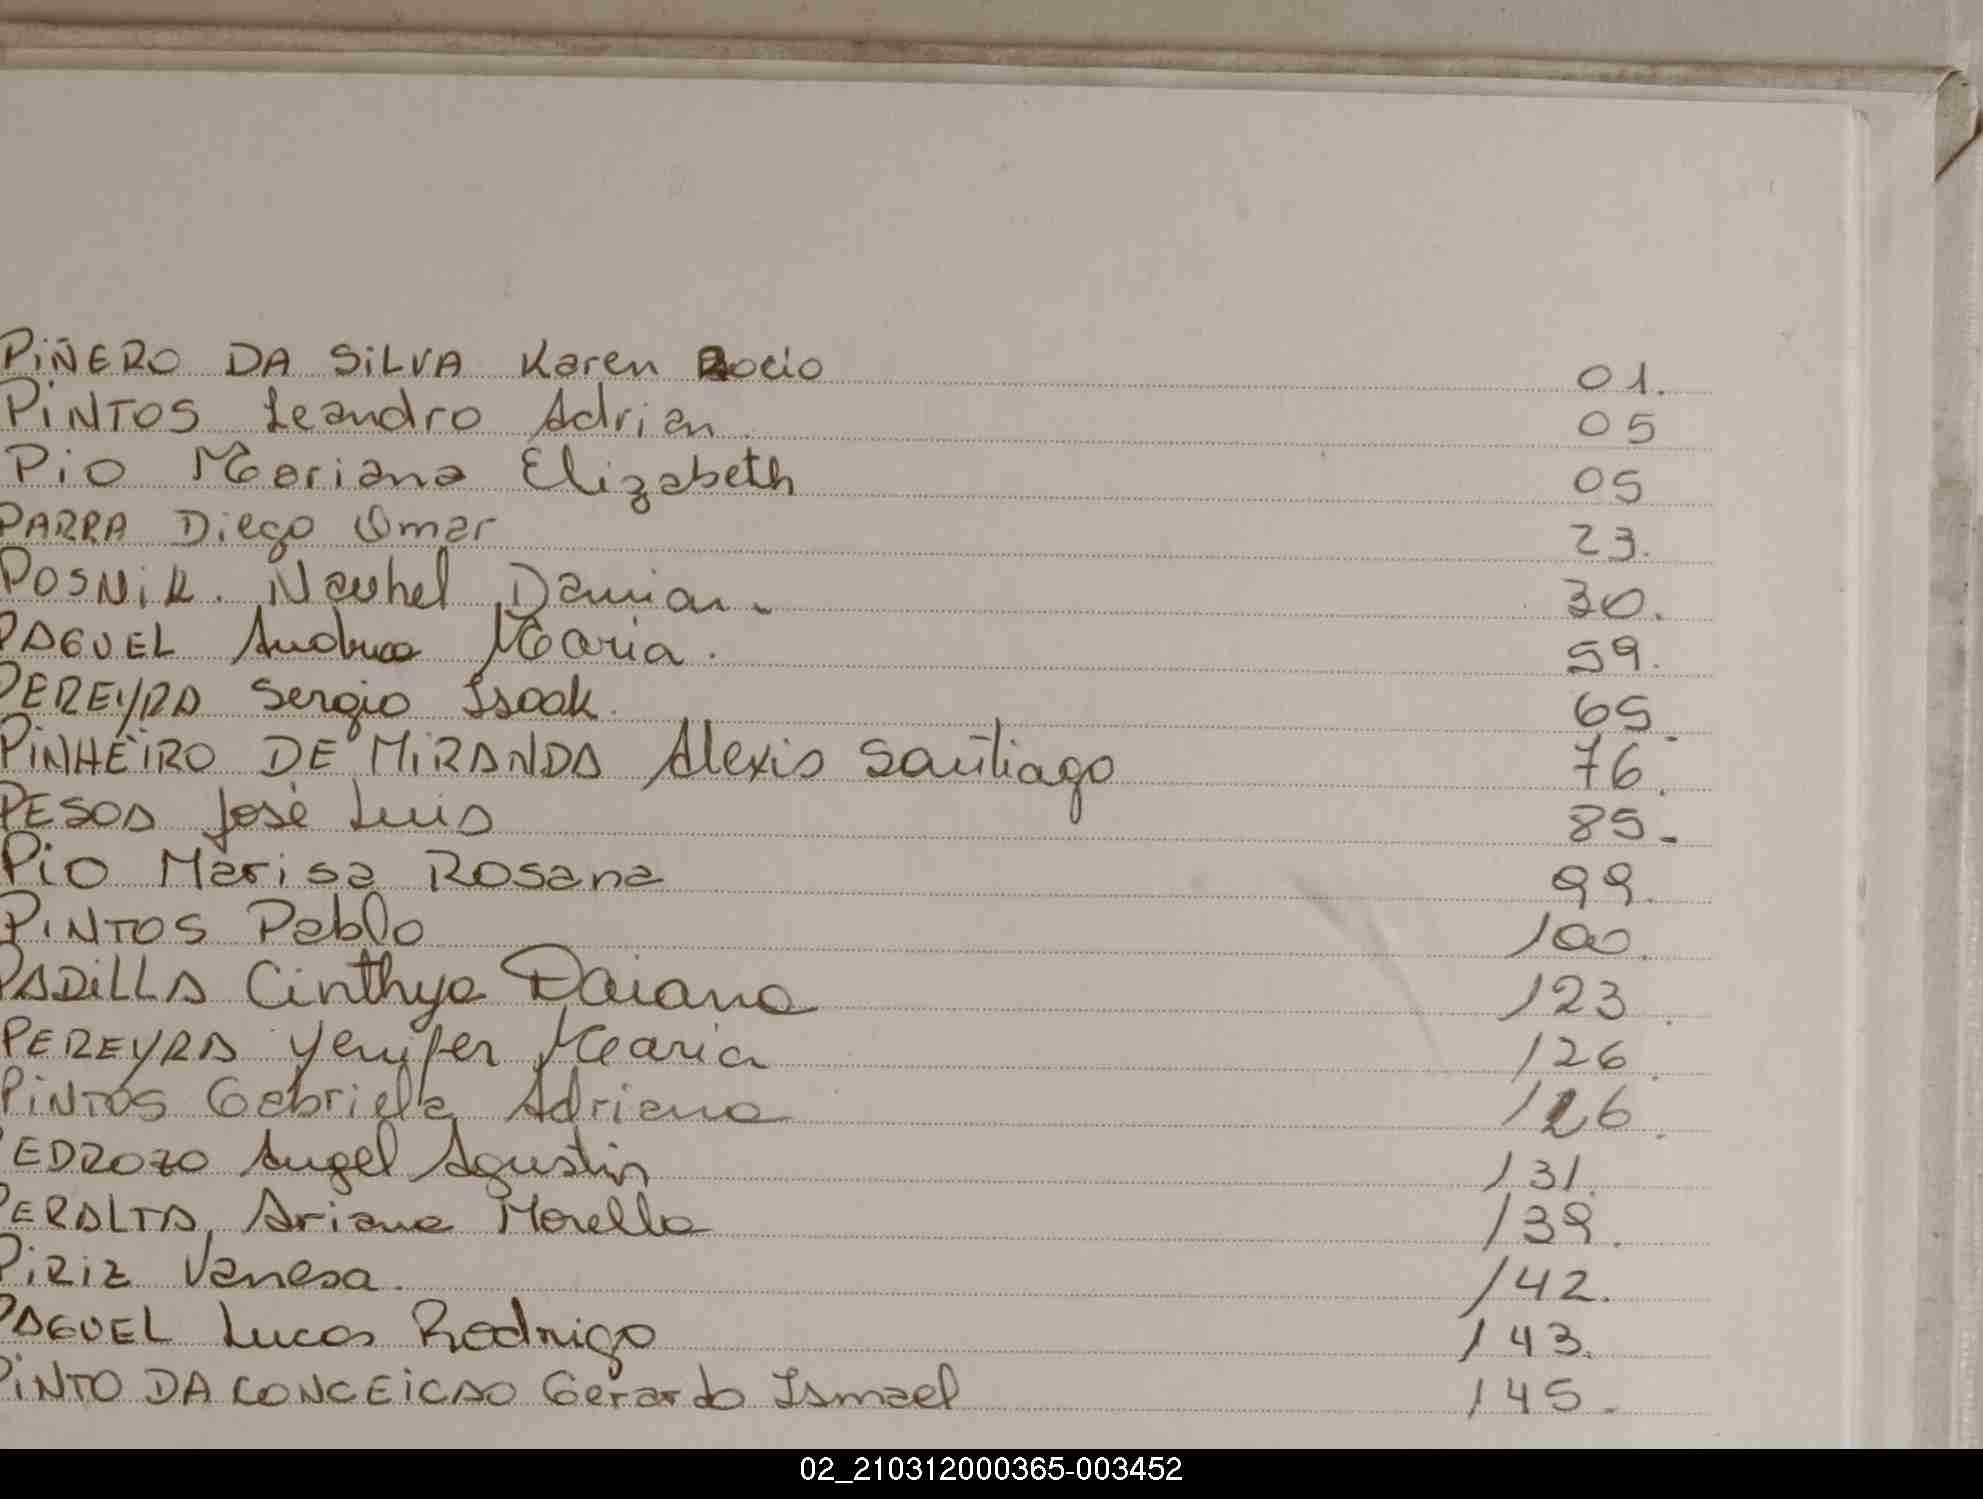 PIÑERO DA SILVA Karen Rocio 01.
PINTOS Leandro Adrian 05
PIO Mariana Elizabeth 05
PARRA Diego Omar 23.
POSNIK. Nauhel Damian. 30.
PAGUEL Andrea Maria. 59.
PEREYRA Sergio Isaak. 65.
PINHEIRO DE MIRANDA Alexis Santiago 76.
PESOA José Luis 85.
PIO Marisa Rosana 99.
PINTOS Pablo 100.
PADILLA Cinthya Daiana 123.
PEREYRA Yenifer Maria 126.
PINTOS Gabriela Adriana 126.
PEDROZO Angel Agustin 131.
PERALTA, Ariana Morella 139.
PIRIZ Vanesa. 142.
PAGUEL Lucas Rodrigo 143.
PINTO DA CONCEICAO Gerardo Ismael 145.
02_210312000365-003452